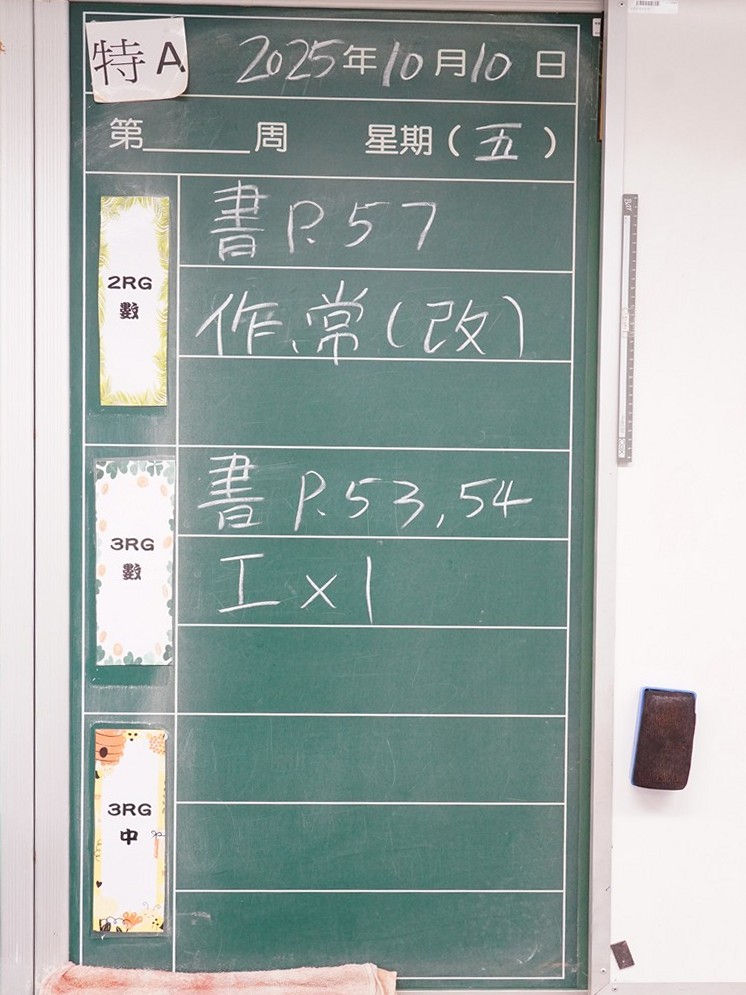 特A
2025年10月10日
第______周 星期(五)
2RG
數
書 P.57
作、常(改)
3RG
數
書 P.53,54
工x1
3RG
中